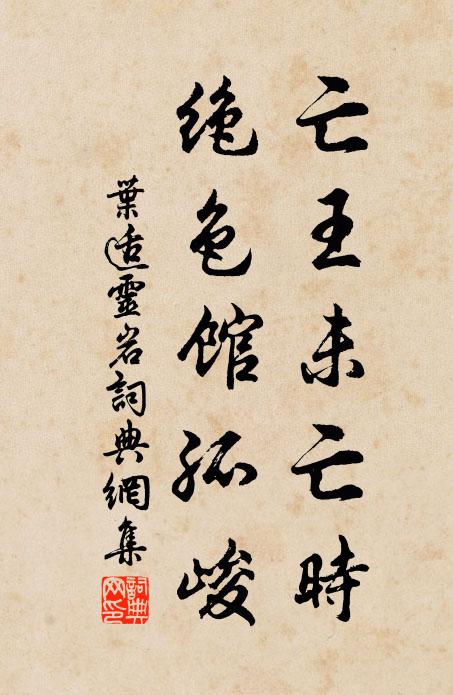 亡王未亡時
绝色館孤峻
葉适靈岩詞典網集
詞典网印